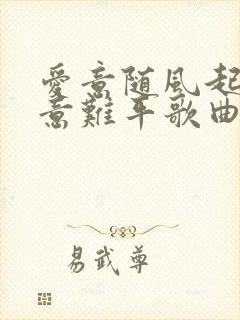 愛意随風起
意難平歌曲
易武尊